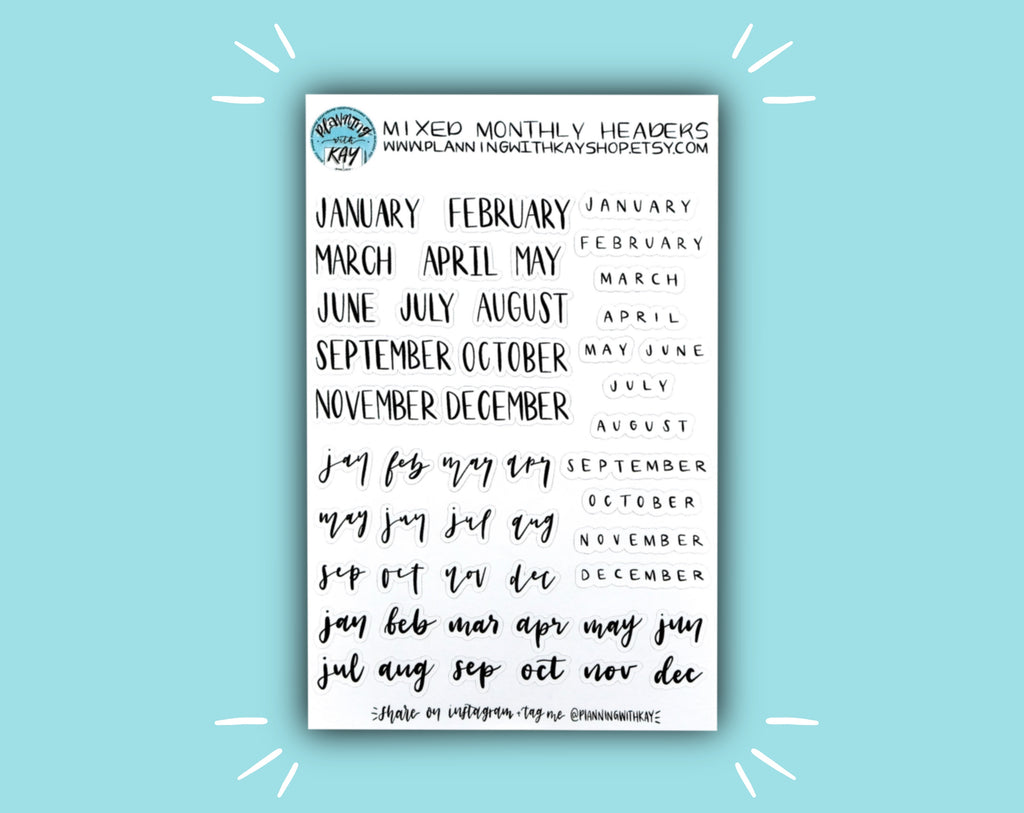 PLANNING
with
KAY
MIXED MONTHLY HEADERS
WWW.PLANNINGWITHKAYSHOP.ETSY.COM
JANUARY FEBRUARY
MARCH APRIL MAY
JUNE JULY AUGUST
SEPTEMBER OCTOBER
NOVEMBER DECEMBER
jan feb mar apr
may jun jul aug
sep oct nov dec
JANUARY
FEBRUARY
MARCH
APRIL
MAY JUNE
JULY
AUGUST
SEPTEMBER
OCTOBER
NOVEMBER
DECEMBER
jan feb mar apr may jun
jul aug sep oct nov dec
share on instagram + tag me @PLANNINGWITHKAY